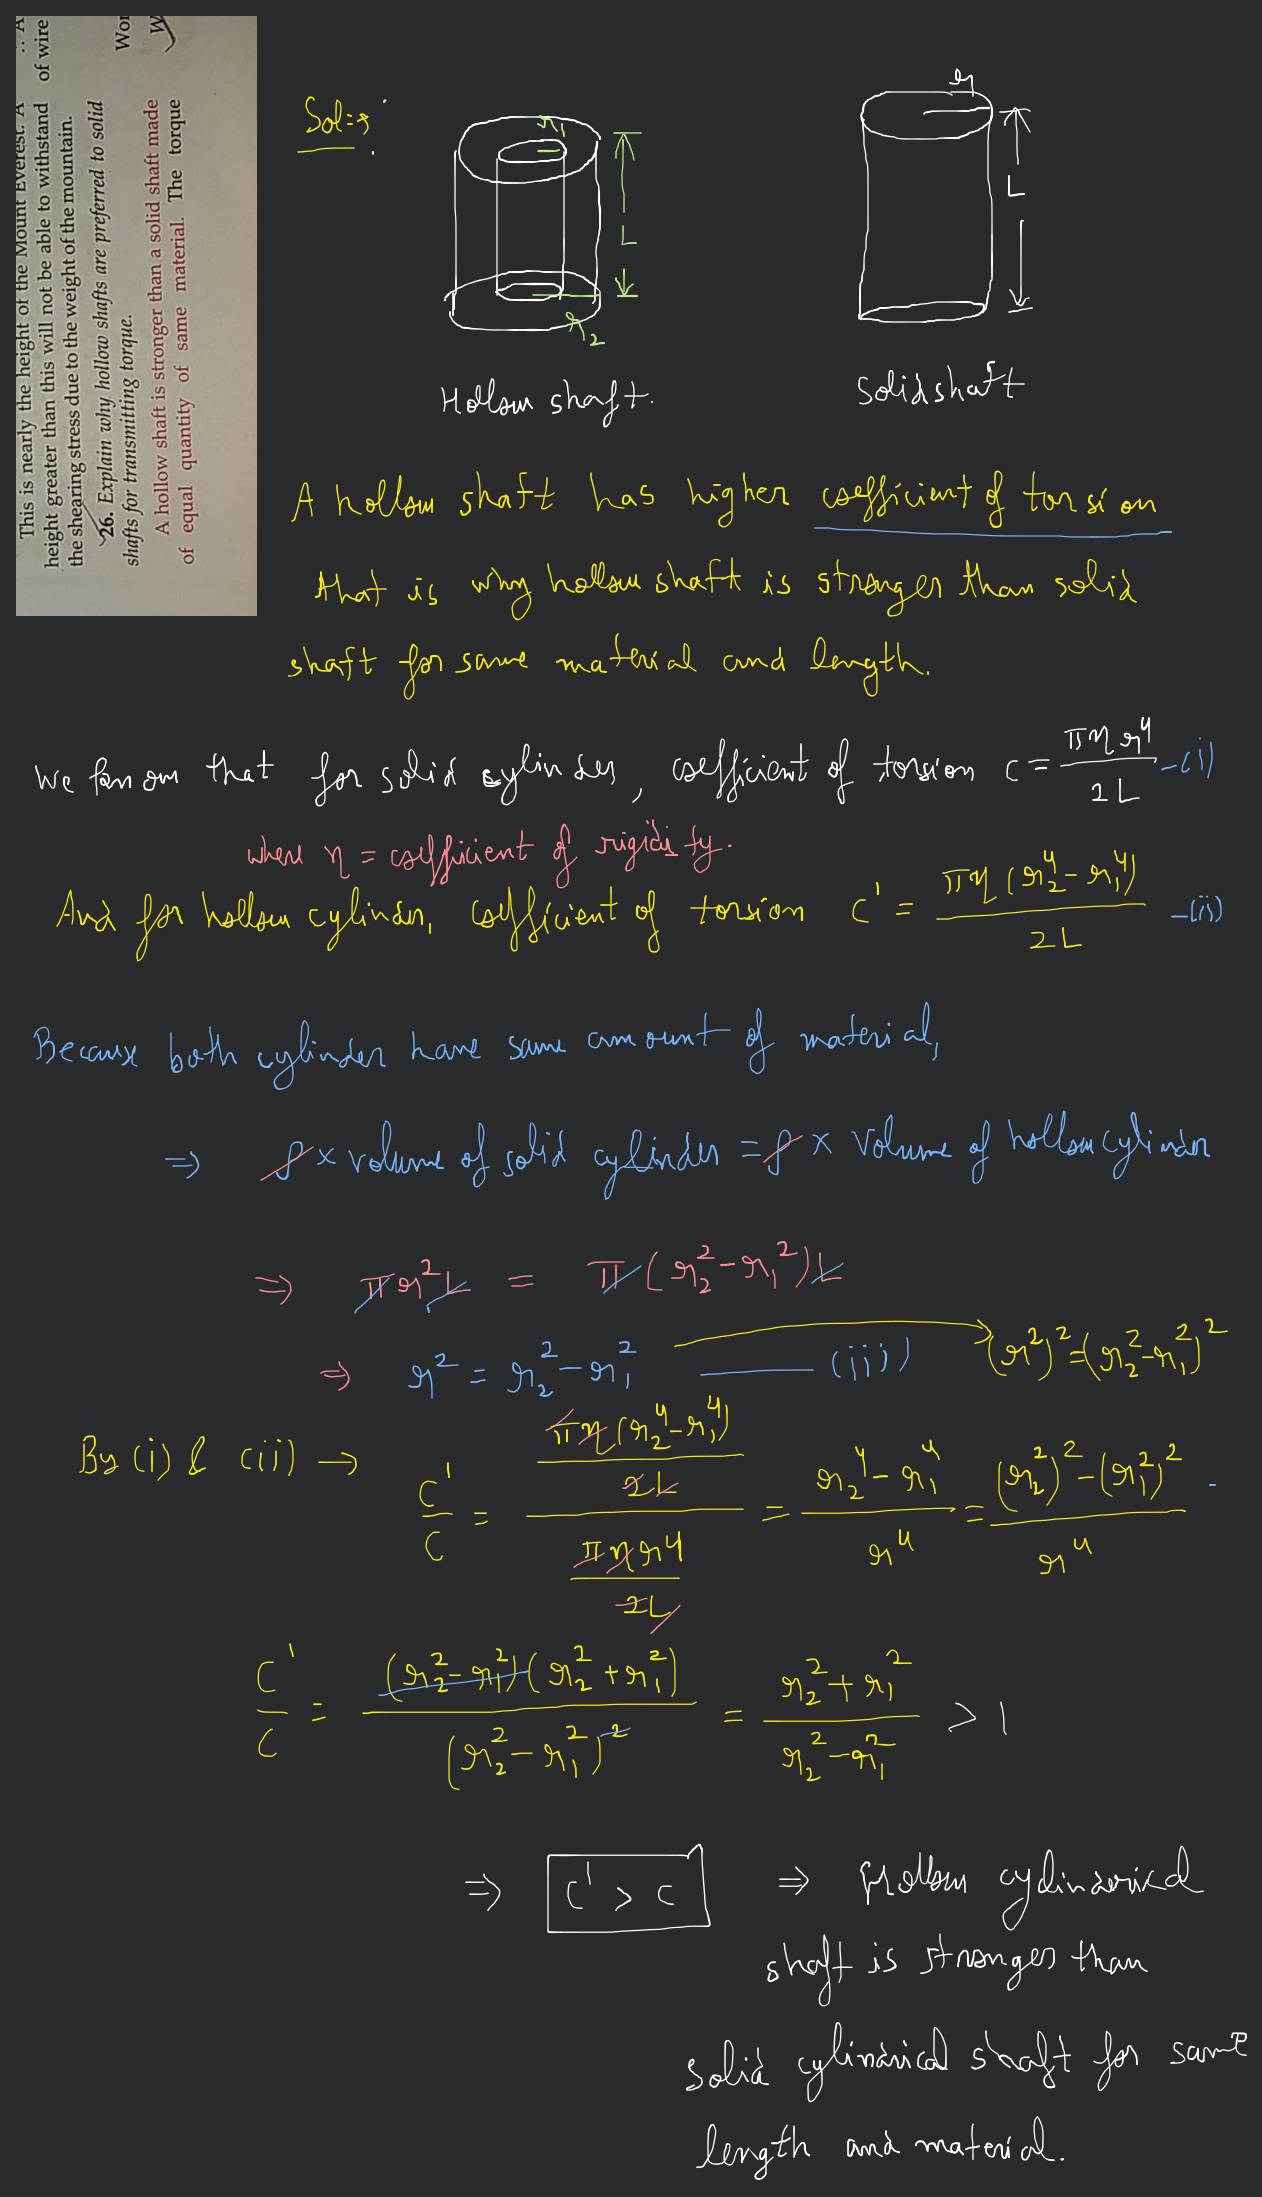 This is nearly the height of the Mount Everest. A
height greater than this will not be able to withstand
the shearing stress due to the weight of the mountain.
26. Explain why hollow shafts are preferred to solid
shafts for transmitting torque.
A hollow shaft is stronger than a solid shaft made
of equal quantity of same material. The torque
∴ A
of wire
Wor
W
Sol:⇒
r₁
L
r₂
Hollow shaft.
r
L
Solid shaft
A hollow shaft has higher coefficient of torsion
that is why hollow shaft is stronger than solid
shaft for same material and length.
We know that for solid cylinder, coefficient of torsion C = πηr⁴/2L -(i)
where η = coefficient of rigidity.
And for hollow cylinder, coefficient of torsion C' = πη(r₂⁴-r₁⁴)/2L -(ii)
Because both cylinder have same amount of material,
⇒ ρ × volume of solid cylinder = ρ × Volume of hollow cylinder
⇒ πr²L = π(r₂²-r₁²)L
⇒ r² = r₂²-r₁² —(iii) → (r²)²=(r₂²-r₁²)²
By (i) & (ii) → C'/C = (πη(r₂⁴-r₁⁴)/2L)/(πηr⁴/2L) = (r₂⁴-r₁⁴)/r⁴ = ((r₂²)²-(r₁²)²)/r⁴
C'/C = (r₂²-r₁²)(r₂²+r₁²)/(r₂²-r₁²)² = (r₂²+r₁²)/(r₂²-r₁²) > 1
⇒ C' > C ⇒ Hollow cylindrical
shaft is stronger than
solid cylindrical shaft for same
length and material.